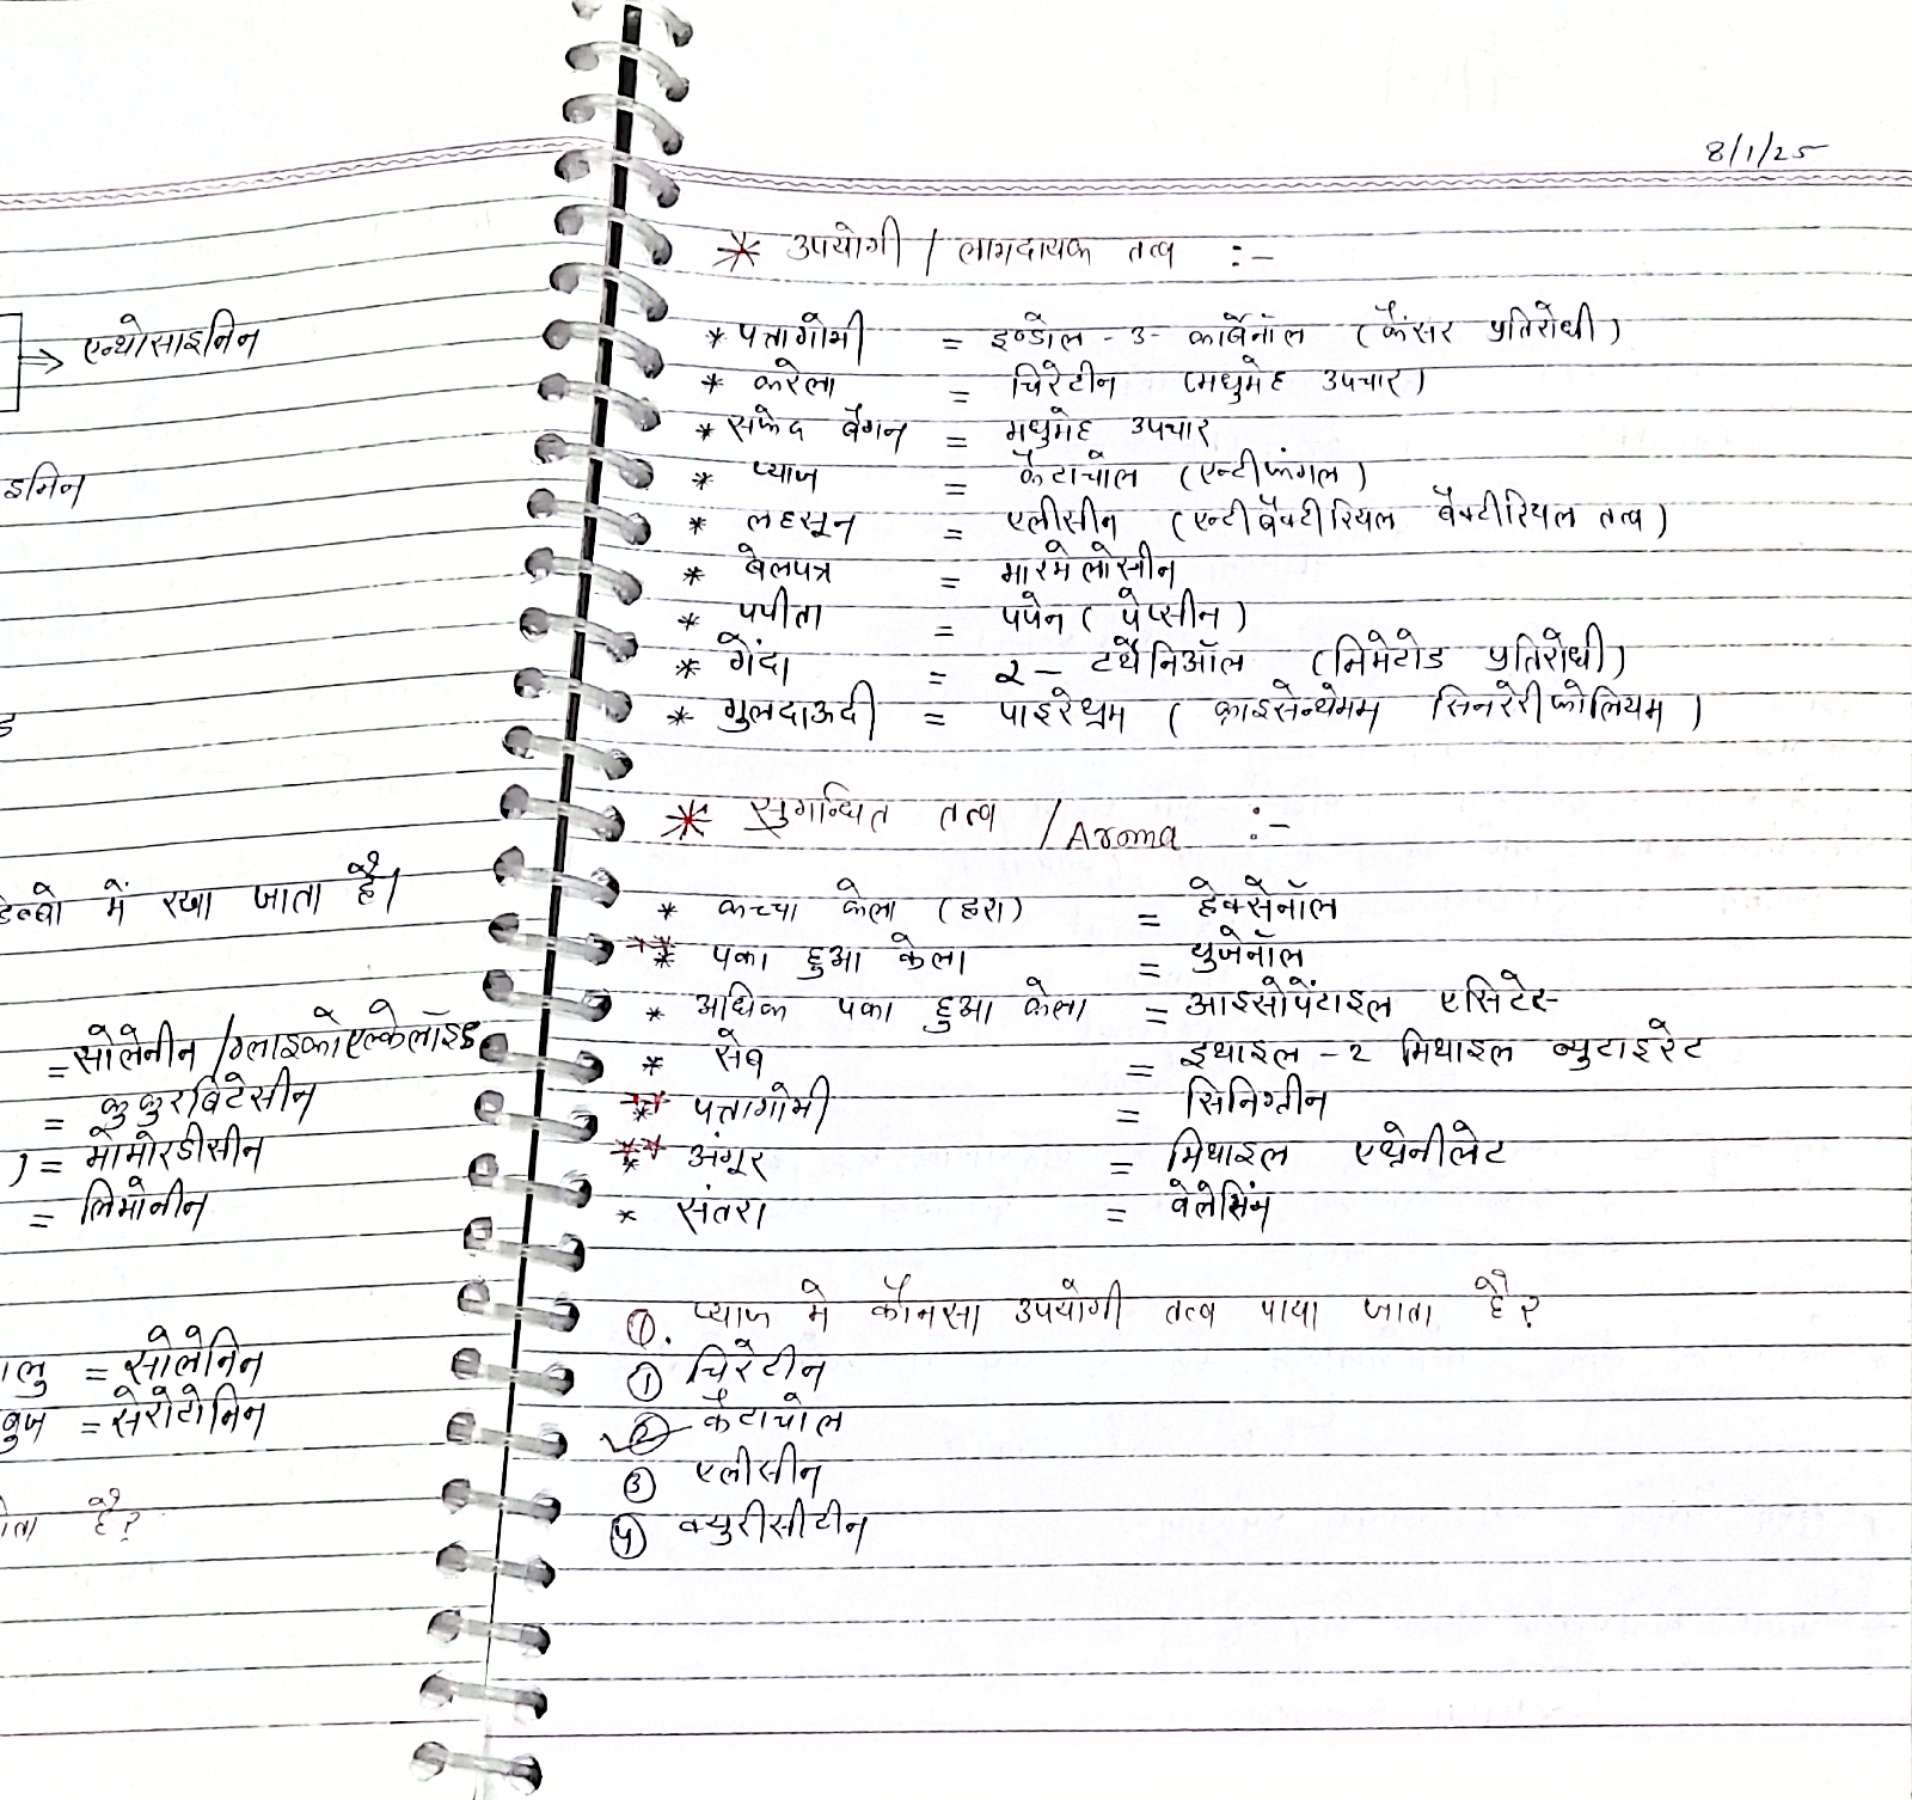 एन्थोसाइनिन
इनिन
ड
डिब्बो में रखा जाता है।
= सोलेनीन / ग्लाइकोएल्केलॉइड
= कुकुरबिटेसीन
) = मोमोरडीसीन
= लिमोनीन
ालु = सोलेनिन
बुज = सेरोटोनिन
ोता है?
8/1/25
* उपयोगी / लाभदायक तत्व :-
* पत्तागोभी = इण्डोल - 3 - कार्बेनॉल (कैंसर प्रतिरोधी)
* करेला = चिरेटीन (मधुमेह उपचार)
* सफेद बैंगन = मधुमेह उपचार
* प्याज = कैटाचोल (एन्टीफंगल)
* लहसून = एलीसीन (एन्टीबैक्टीरियल बैक्टीरियल तत्व)
* बेलपत्र = मारमेलोसीन
* पपीता = पपेन (पेप्सीन)
* गेंदा = 2 - टर्थेनिऑल (निमेटोड प्रतिरोधी)
* गुलदाऊदी = पाइरेथ्रम (क्राइसेन्थेमम सिनरेरीफोलियम)
* सुगन्धित तत्व / Aroma :-
* कच्चा केला (हरा) = हेक्सेनॉल
** पका हुआ केला = युजेनॉल
* अधिक पका हुआ केला = आइसोपेंटाइल एसिटेट
* सेब = इथाइल - 2 मिथाइल ब्युटाइरेट
** पत्तागोभी = सिनिग्रीन
*** अंगूर = मिथाइल एथ्रेनीलेट
* संतरा = वेलेंसिन
Q. प्याज मे कौनसा उपयोगी तत्व पाया जाता है?
① चिरेटीन
② कैटाचोल
③ एलीसीन
④ क्युरीसीटीन